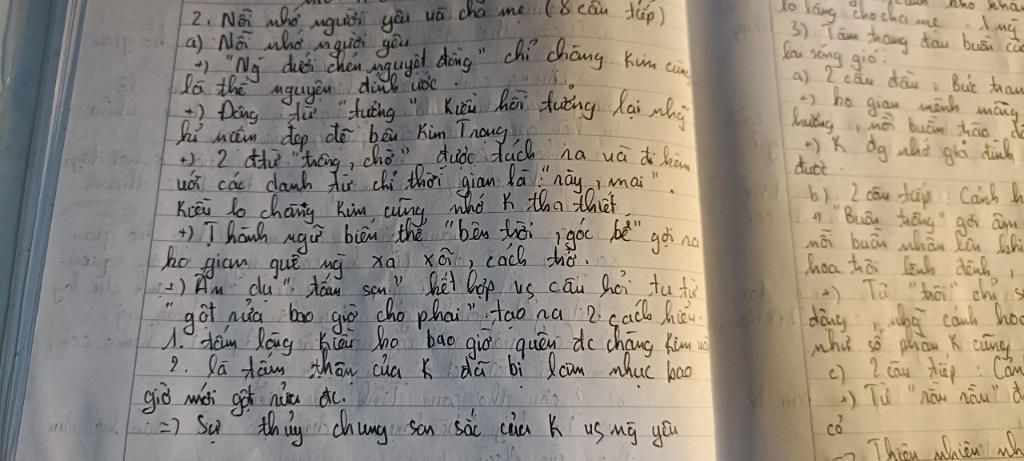 2. Nỗi nhớ người yêu và cha mẹ (8 câu tiếp)
a) Nỗi nhớ người yêu
+) "Ng dưới chén nguyệt đồng" chỉ chàng Kim cùng
lá thề nguyền đính ước.
+) Động từ "tưởng" Kiều hồi tưởng lại nhg
kỉ niệm đẹp đẽ bên Kim Trọng
+) 2 đtừ "trông, chờ" được tách ra và đi kèm
với các danh từ chỉ thời gian là "rày, mai".
Kiều lo chàng Kim cũng nhớ K tha thiết
+) Thành ngữ biến thể "bên trời, góc bể" gợi ra
ko gian quê ng xa xôi, cách trở.
+) Ẩn dụ "tấm son" kết hợp vs câu hỏi tu từ
"gột rửa bao giờ cho phai" tạo ra 2 cách hiểu.
1. tấm lòng Kiều ko bao giờ quên đc chàng Kim và
2. là tấm thân của K đã bị làm nhục bao
giờ mới gột rửa đc.
=> Sự thủy chung son sắc của K vs ng yêu
lo lắng cho cha mẹ
3) Tâm trạng đau buồn của
lai sóng gió.
a) 2 câu đầu: Bức tran
+) ko gian mênh mông
hướng, nỗi buồn trào d
+) K đg nhớ gia đình
được.
b) 2 câu tiếp: Cảnh h
+) "Buồn trông" gợi âm
nỗi buồn nhân lên khi
hoa trôi lênh đênh,
+) Từ "trôi" chỉ s
động, nhg cánh hoa
như số phận K cũng
c) 2 câu tiếp: Cản
+) Từ "rầu rầu" d
cỏ
=> Thiên nhiên nh